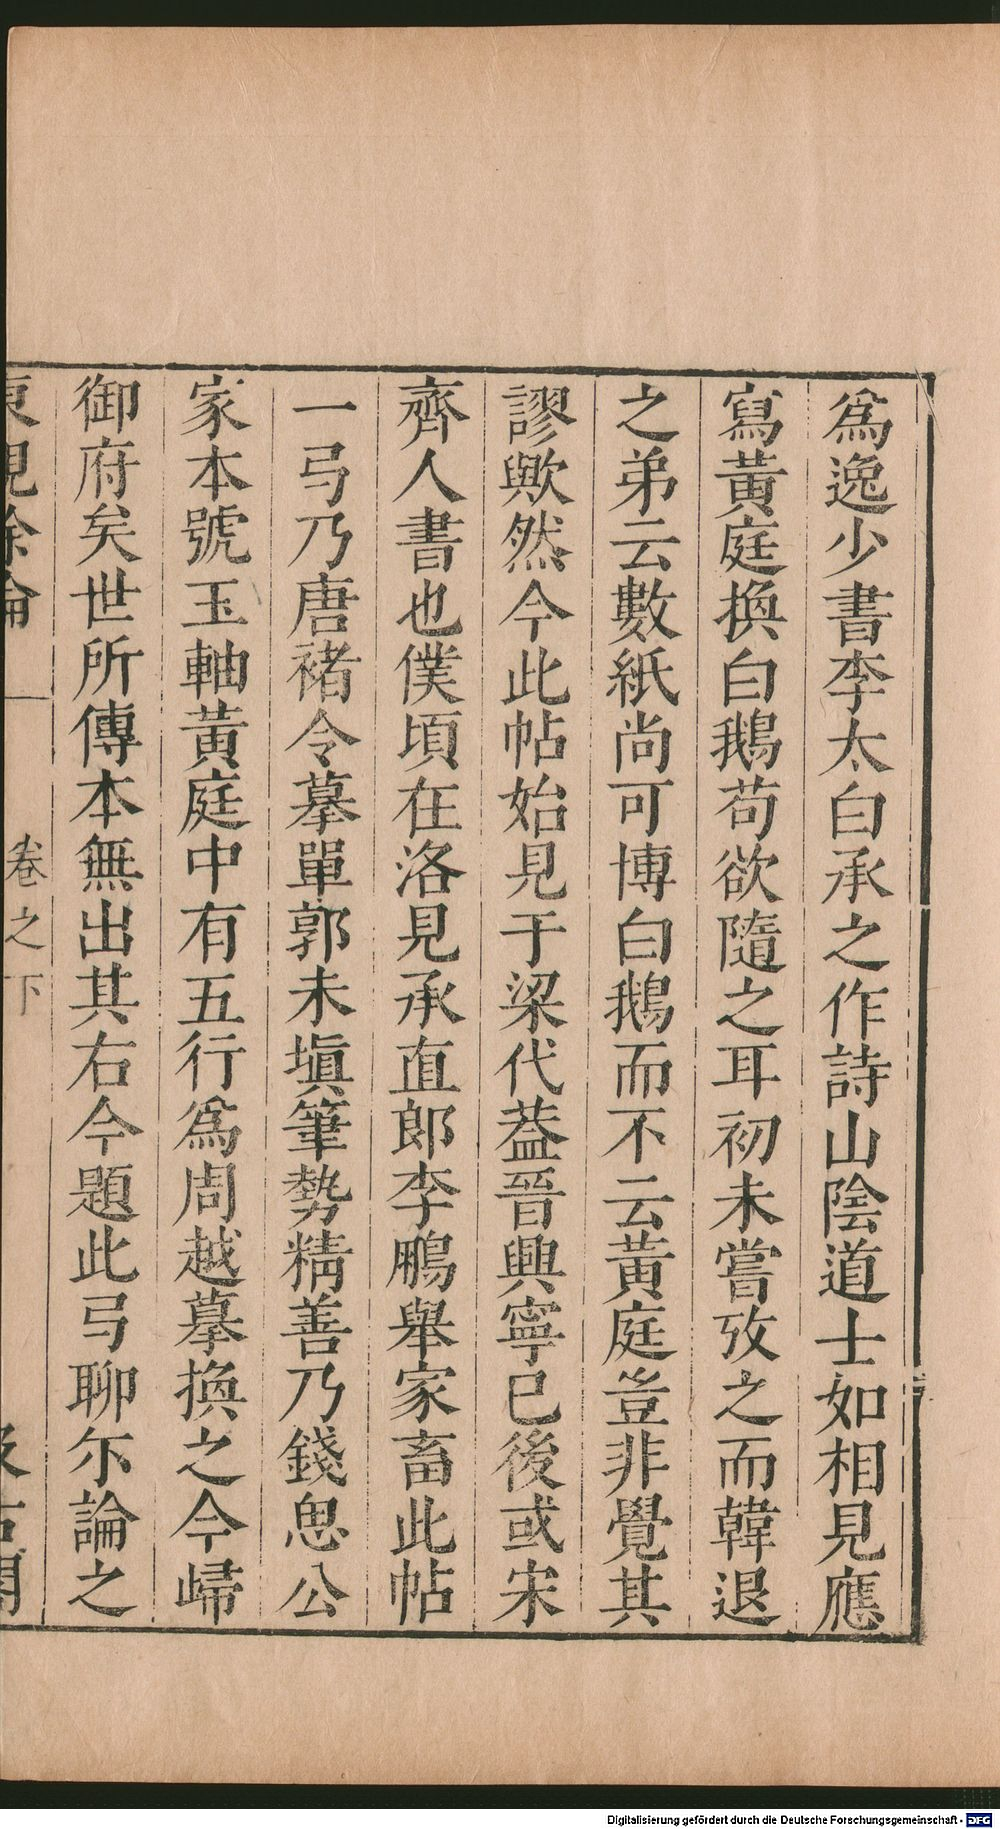 爲逸少書李太白承之作詩山陰道士如相見應
寫黃庭換白鵝苟欲隨之耳初未嘗攷之而韓退
之弟云數紙尚可博白鵝而不云黃庭豈非覺其
謬歟然今此帖始見于梁代葢晉興寧已後或宋
齊人書也僕頃在洛見承直郎李鵬舉家畜此帖
一弓乃唐褚令摹單郭未塡筆勢精善乃錢思公
家本號玉軸黃庭中有五行爲周越摹換之今歸
御府矣世所傳本無出其右今題此弓聊尓論之
東觀餘論 卷之下 汲古閣
Digitalisierung gefördert durch die Deutsche Forschungsgemeinschaft - DFG